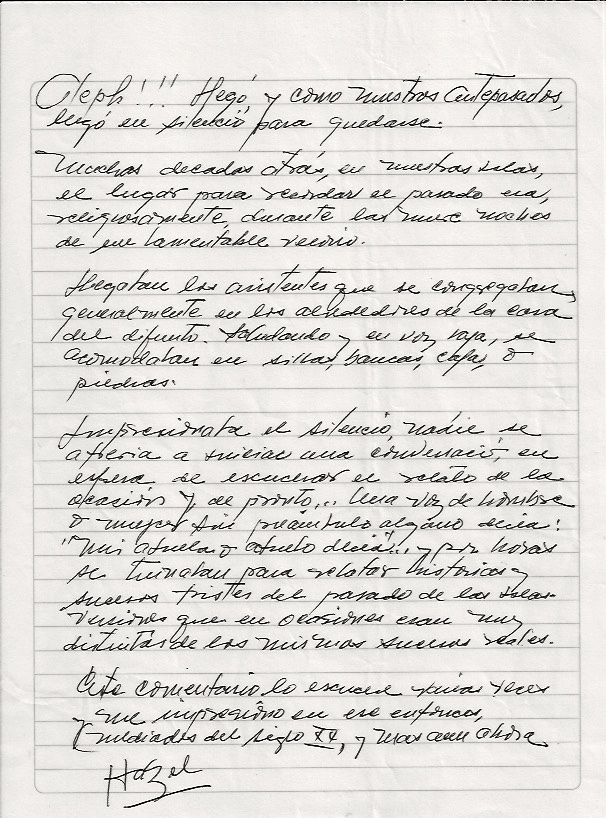 Oleph!!! Llegó, y como nuestros antepasados,
llegó en silencio para quedarse.
Muchas decadas atrás, en nuestras islas,
el lugar para recordar el pasado era,
religiosamente, durante las nueve noches
de un lamentable velorio.
Llegaban los asistentes que se congregaban,
generalmente en los alrededores de la casa
del difunto. Saludando y en voz baja, se
acomodaban en sillas, bancas, cajas, o
piedras.
Impresionaba el silencio, nadie se
atrevia a iniciar una conversació, en
espera de escuchar el relato de la
ocasión y, de pronto... Una voz de hombre
o mujer sin preámbulo alguno decia:
"Mi abuela o abuelo decia"... y por horas
se turnaban para relatar historias y
sucesos tristes del pasado de las islas.
Versiones que en ocasiones eran muy
distintas de los mismos sucesos reales.
Este comentario lo escuche varias veces
y me impresiono en ese entonces,
(mediados del siglo XX, y mas aun ahora
Hazel